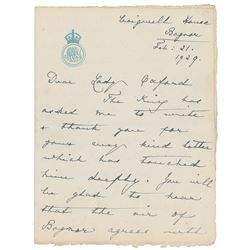 Craigweil House
Bognor
Feb: 21.
1929.
Dear Lady Oxford
The King has
asked me to write
& thank you for
your very kind letter
which has touched
him deeply. You will
be glad to hear
that the air of
Bognor agrees with